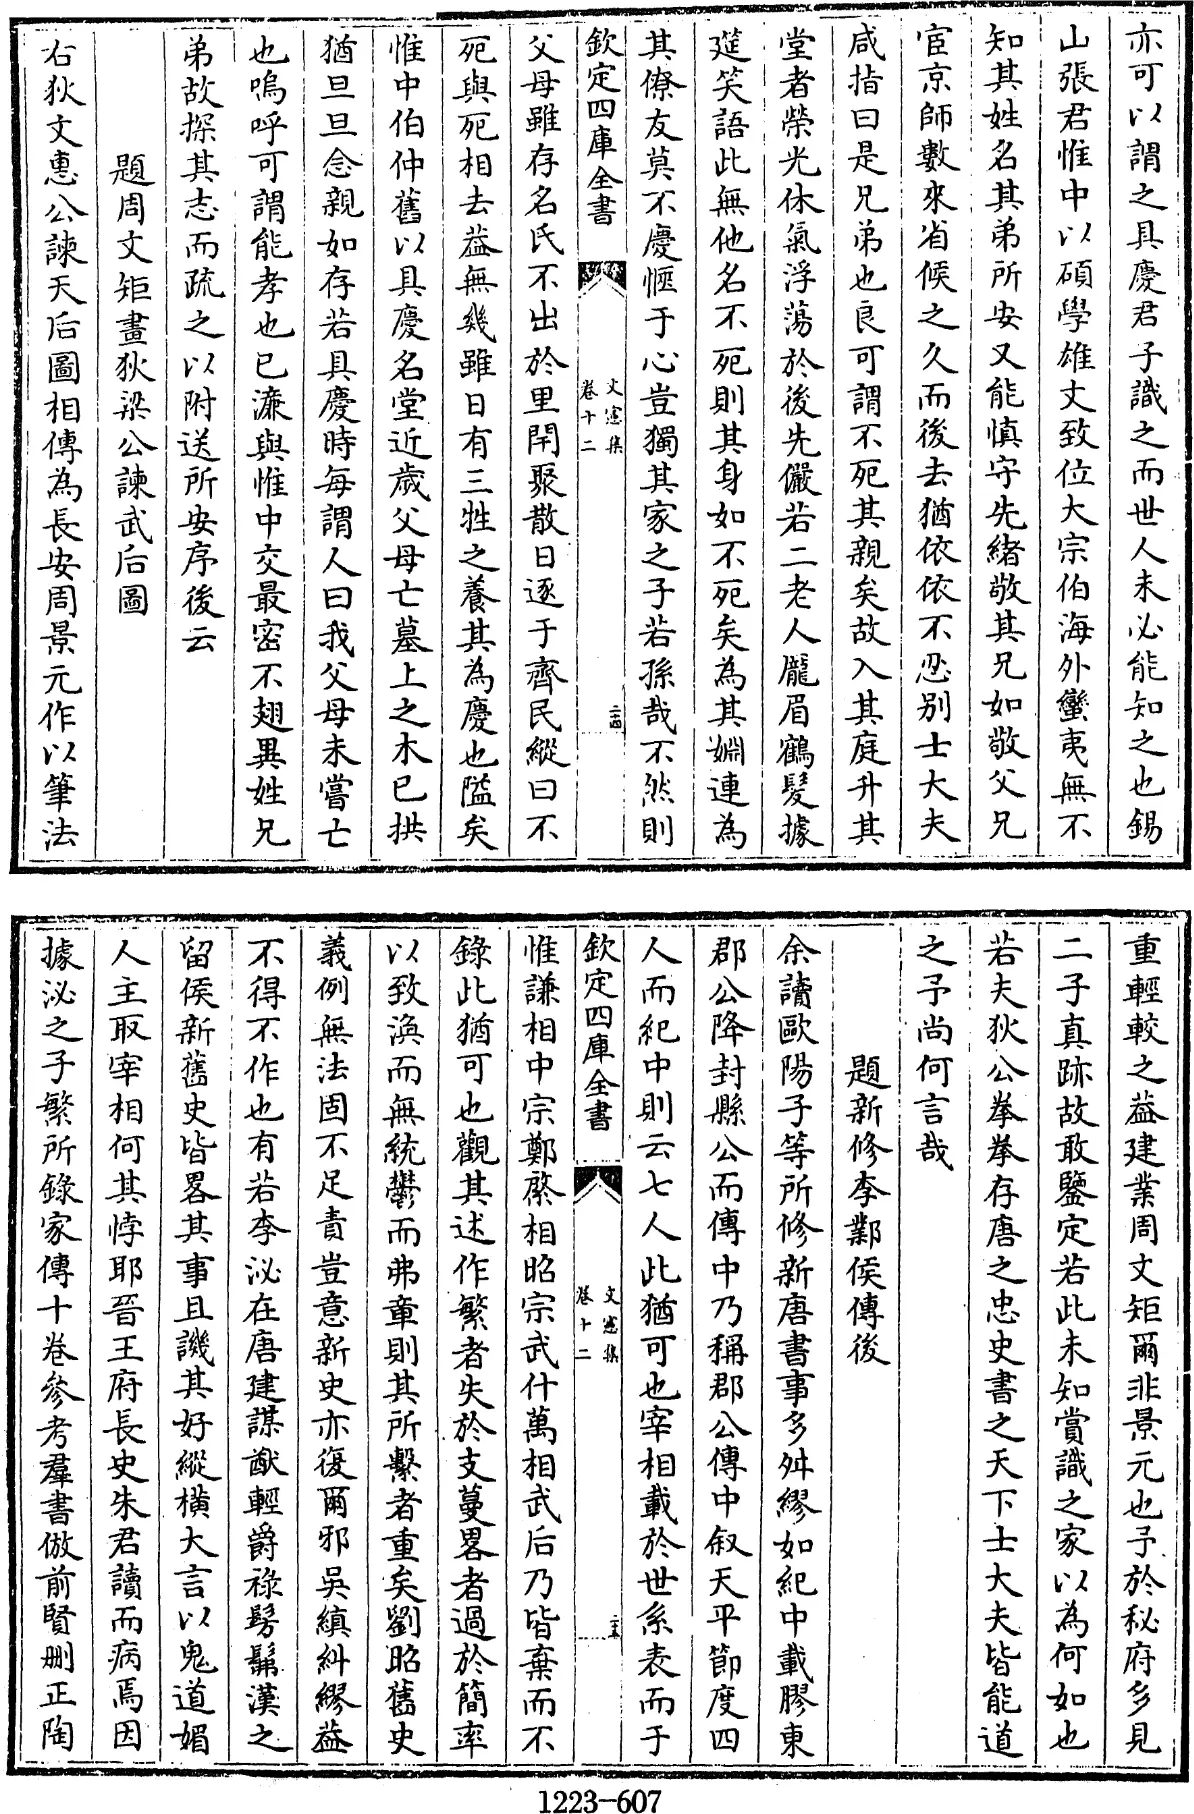 亦可以謂之具慶君子識之而世人未必能知之也錫
山張君惟中以碩學雄文致位大宗伯海外蠻夷無不
知其姓名其弟所安又能慎守先緒敬其兄如敬父兄
宦京師數來省候之久而後去猶依依不忍别士大夫
咸指曰是兄弟也良可謂不死其親矣故入其庭升其
堂者榮光休氣浮蕩於後先儼若二老人龎眉鶴髮據
筵笑語此無他名不死則其身如不死矣為其婣連為
其僚友莫不慶愜于心豈獨其家之子若孫哉不然則
欽定四庫全書
文憲集
卷十二
二十四
父母雖存名氏不出於里閈聚散日逐于齊民縱曰不
死與死相去葢無幾雖日有三牲之養其為慶也隘矣
惟中伯仲舊以具慶名堂近歲父母亡墓上之木已拱
猶旦旦念親如存若具慶時每謂人曰我父母未嘗亡
也嗚呼可謂能孝也已濂與惟中交最密不翅異姓兄
弟故探其志而疏之以附送所安序後云
題周文矩畫狄梁公諫武后圖
右狄文惠公諫天后圖相傳為長安周景元作以筆法
重輕較之葢建業周文矩爾非景元也予於秘府多見
二子真跡故敢鑒定若此未知賞識之家以為何如也
若夫狄公拳拳存唐之忠史書之天下士大夫皆能道
之予尚何言哉
題新修李鄴侯傳後
余讀歐陽子等所修新唐書事多舛繆如紀中載膠東
郡公降封縣公而傳中乃稱郡公傳中叙天平節度四
人而紀中則云七人此猶可也宰相載於世系表而于
欽定四庫全書
文憲集
卷十二
二十五
惟謙相中宗鄭綮相昭宗武什萬相武后乃皆棄而不
錄此猶可也觀其述作繁者失於支蔓畧者過於簡率
以致渙而無統鬱而弗章則其所繫者重矣劉昭舊史
義例無法固不足責豈意新史亦復爾邪吳縝糾繆葢
不得不作也有若李泌在唐建謀猷輕爵祿髣髴漢之
留侯新舊史皆畧其事且譏其好縱横大言以鬼道媚
人主取宰相何其悖耶晉王府長史朱君讀而病焉因
據泌之子繁所錄家傳十卷參考羣書倣前賢刪正陶
1223-607